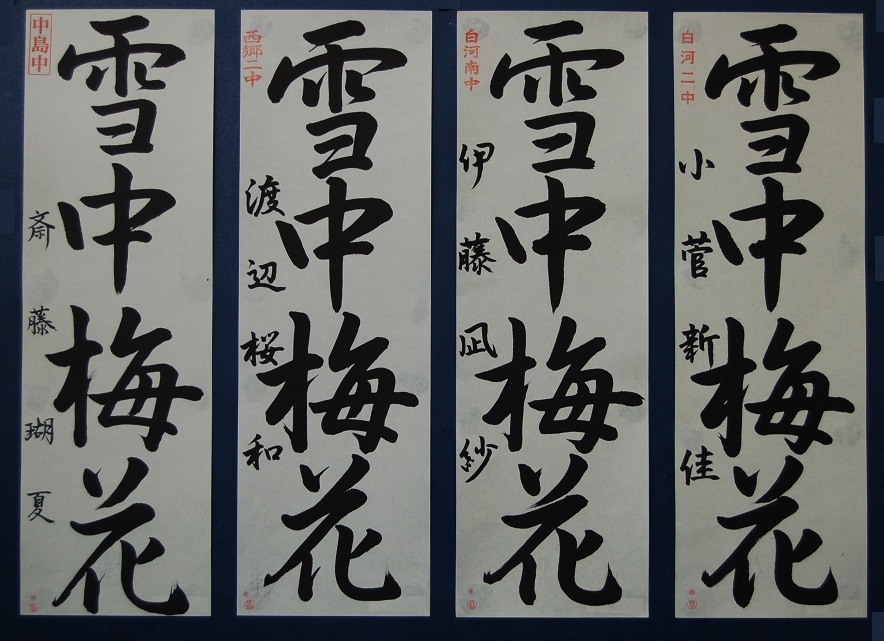 白河二中
雪中梅花
小菅新佳
白河南中
雪中梅花
伊藤凪紗
西郷二中
雪中梅花
渡辺桜和
中島中
雪中梅花
斎藤瑚夏